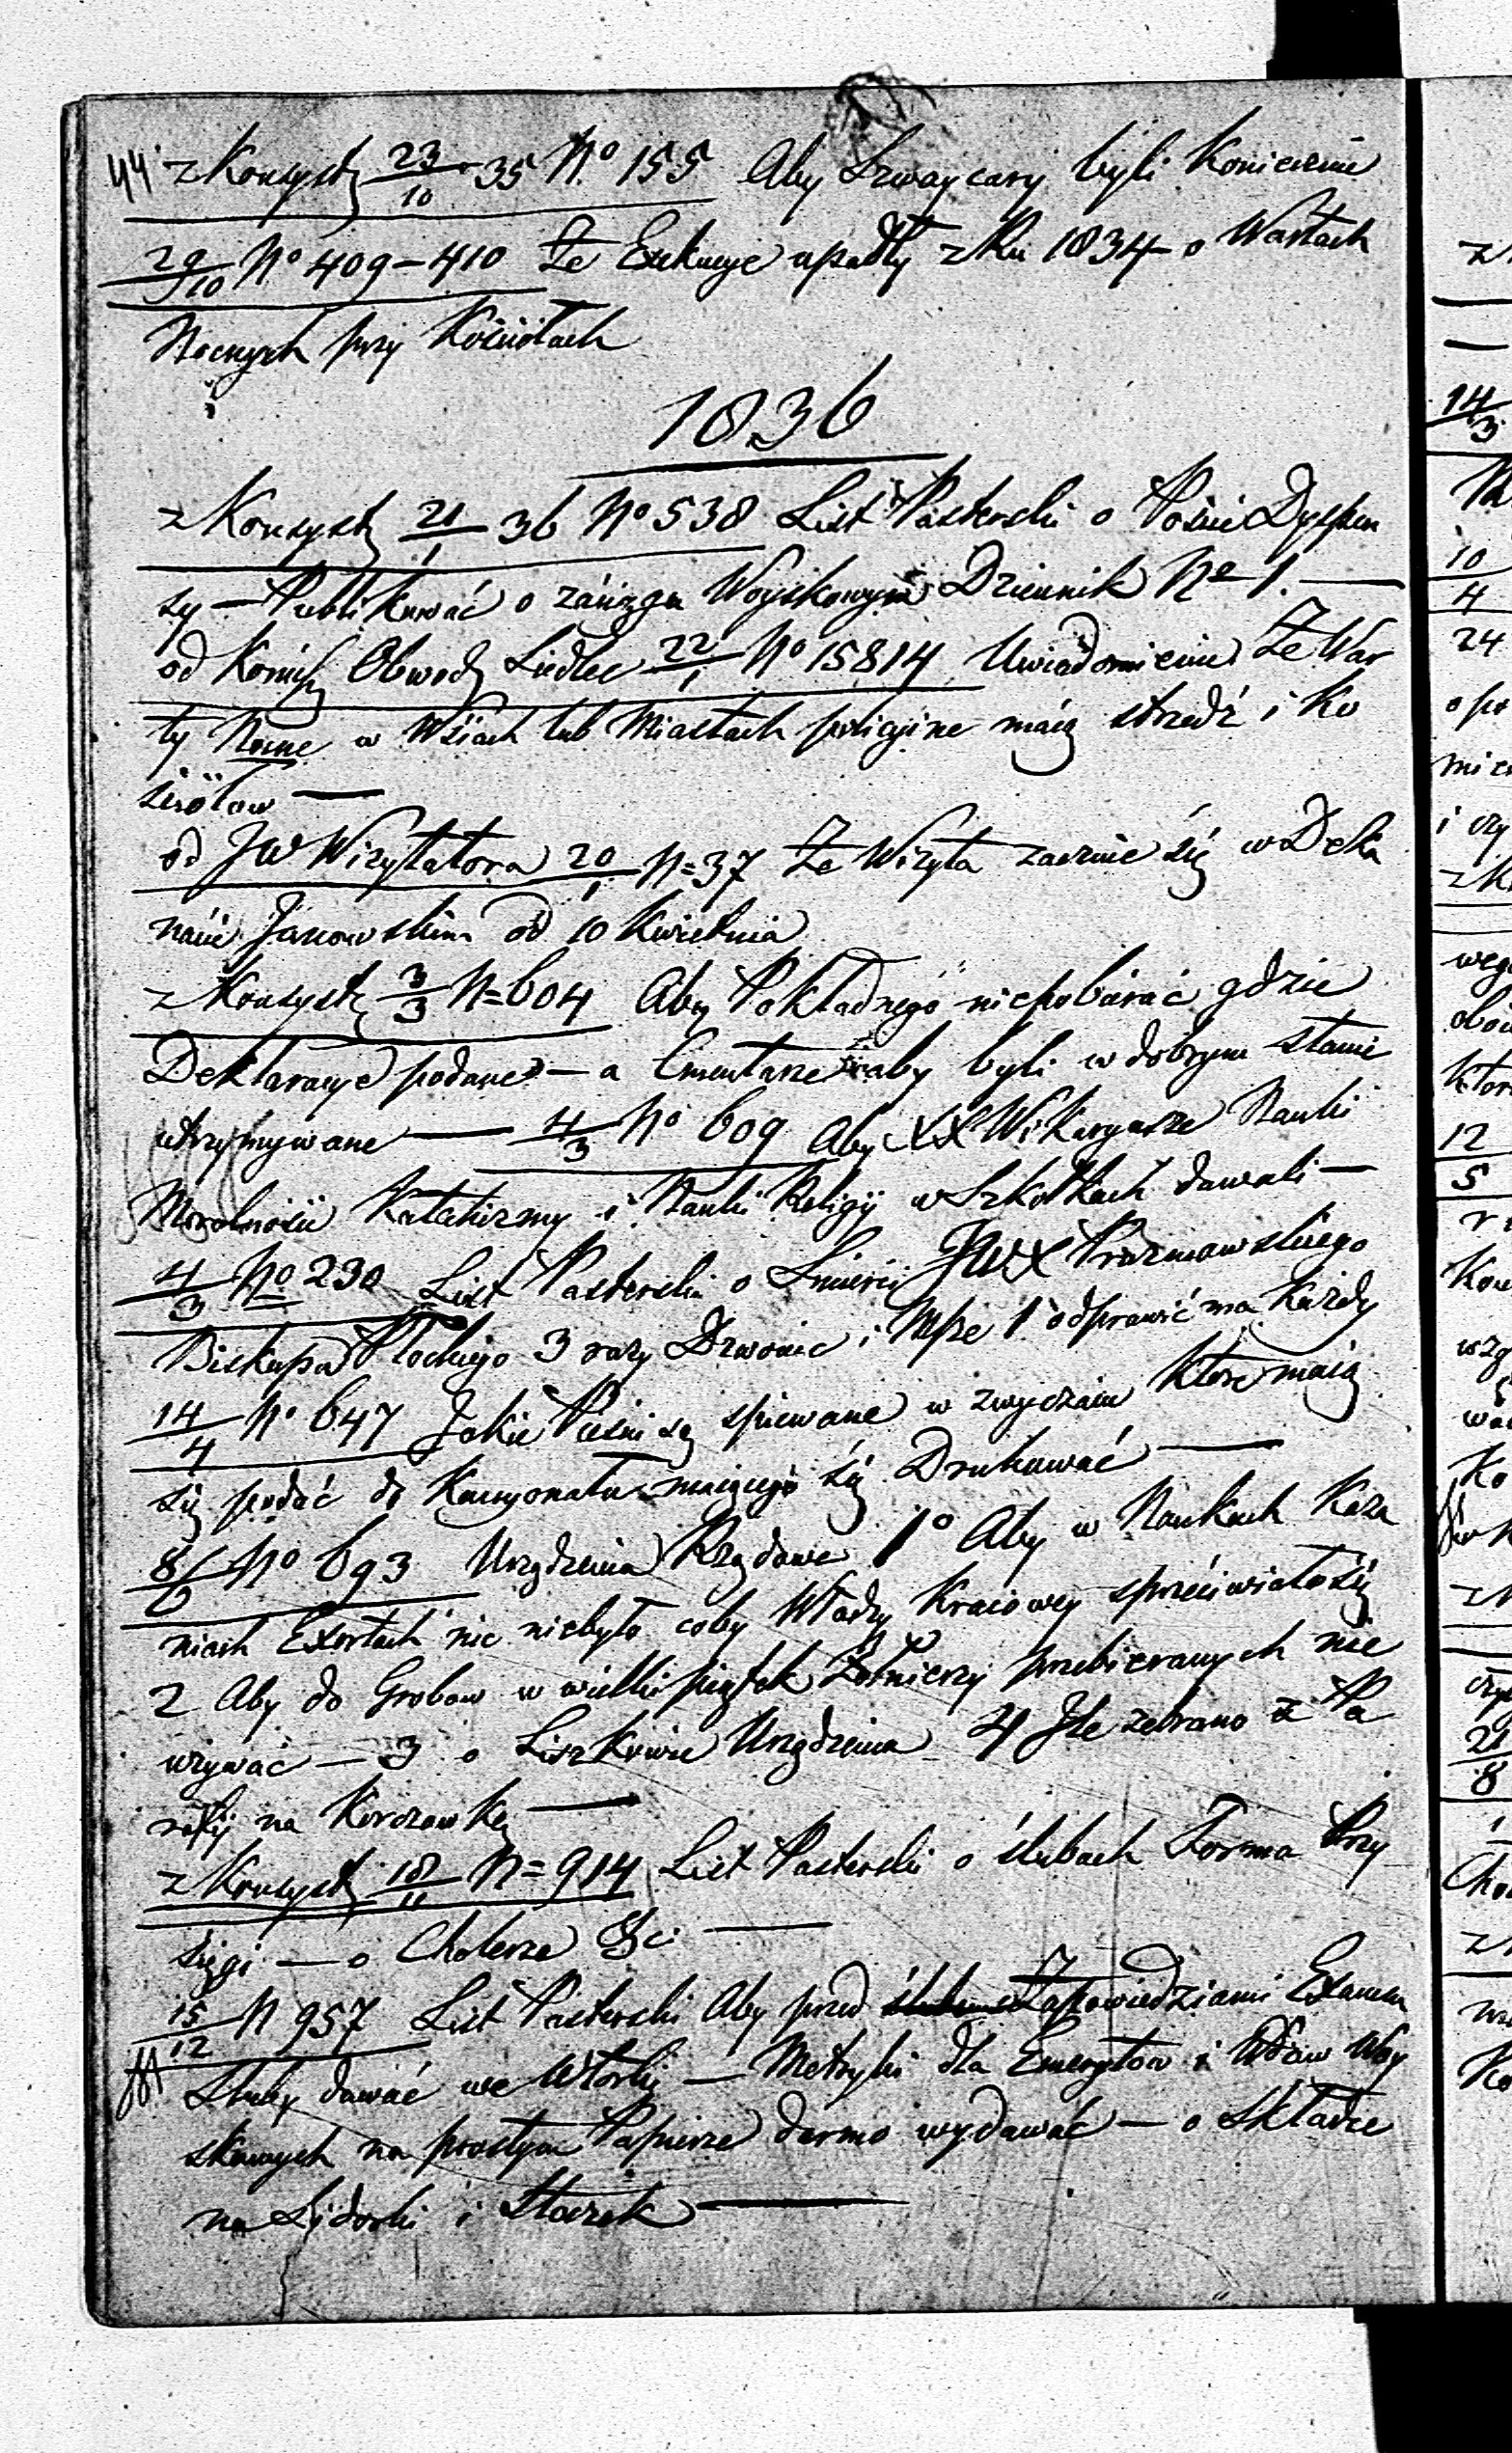 44 z Konsyst 23/10 35 No 155 Aby Szwaycary byli Koniecznie
29/10 No 409-410 Że Exekucye upadły z Ru 1834 o Wartach
Nocnych przy Kościołach
1836
z Konsyst 21/1 36 No 538 List Pasterski o Poście Dyspen
sy — Publikować o zaciągu Woyskowym Dziennik No 1. —
od Komiss Obwod Siedlec 22/1 No 15814 Uwiadomienie Że War
ty Nocne w Wsiach lub Miastach policyine maią strzedź i Ko
ściołow —
od JW Wizytatora 20/1 N=37 Że Wizyta zacznie się w Deka
nacie Janowskim od 10 Kwietnia
z Konsyst 3/3 N=604 Aby Pokładnego niepobierać gdzie
Deklaracye podane — a Cmentarze aby byli w dobrym stanie
utrzymywane — 4/3 No 609 Aby XX Wikaryusze Nauki
Moralności Katechizmy i Nauki Religij w Szkołkach dawali —
4/3 No 230 List Pasterski o Śmierci JWX Prazmowskiego
Biskupa Płockiego 3 razy Dzwonic i Mszę 1 odprawić ma Każdy
14/4 No 647 Jakie Pieśni są spiewane w zwyczaiu Które maią
się podać do Kancyonału maiącego się Drukować —
8/6 No 693 Urządzenia Rządowe 1o Aby w Naukach Kaza
niach Exortach nic niebyło coby Władzy Kraiowey sprzeciwiało się
2 Aby do Grobow w wielki piątek Żołnierzy przebieranych nie
używać — 3 o Urządzenia 4 Ile zebrano z Pa
rafij na Korczowkę —
z Konsyst 18/11 N=914 List Pasterski o ślubach Forma Przy
sięgi — o Cholerze &c: —
15/12 N 957 List Pasterski Aby przed Zapowiedziami Examen
Sluby dawać we Wtorki — Metryki dla Emerytow i Wdow Woy
skowych na prostym Papierze darmo wydawać — o Składce
na i Stoczek —
z
14/3
10/4
24
o po
mie
i
z K
12/5
Ko
21/8
z